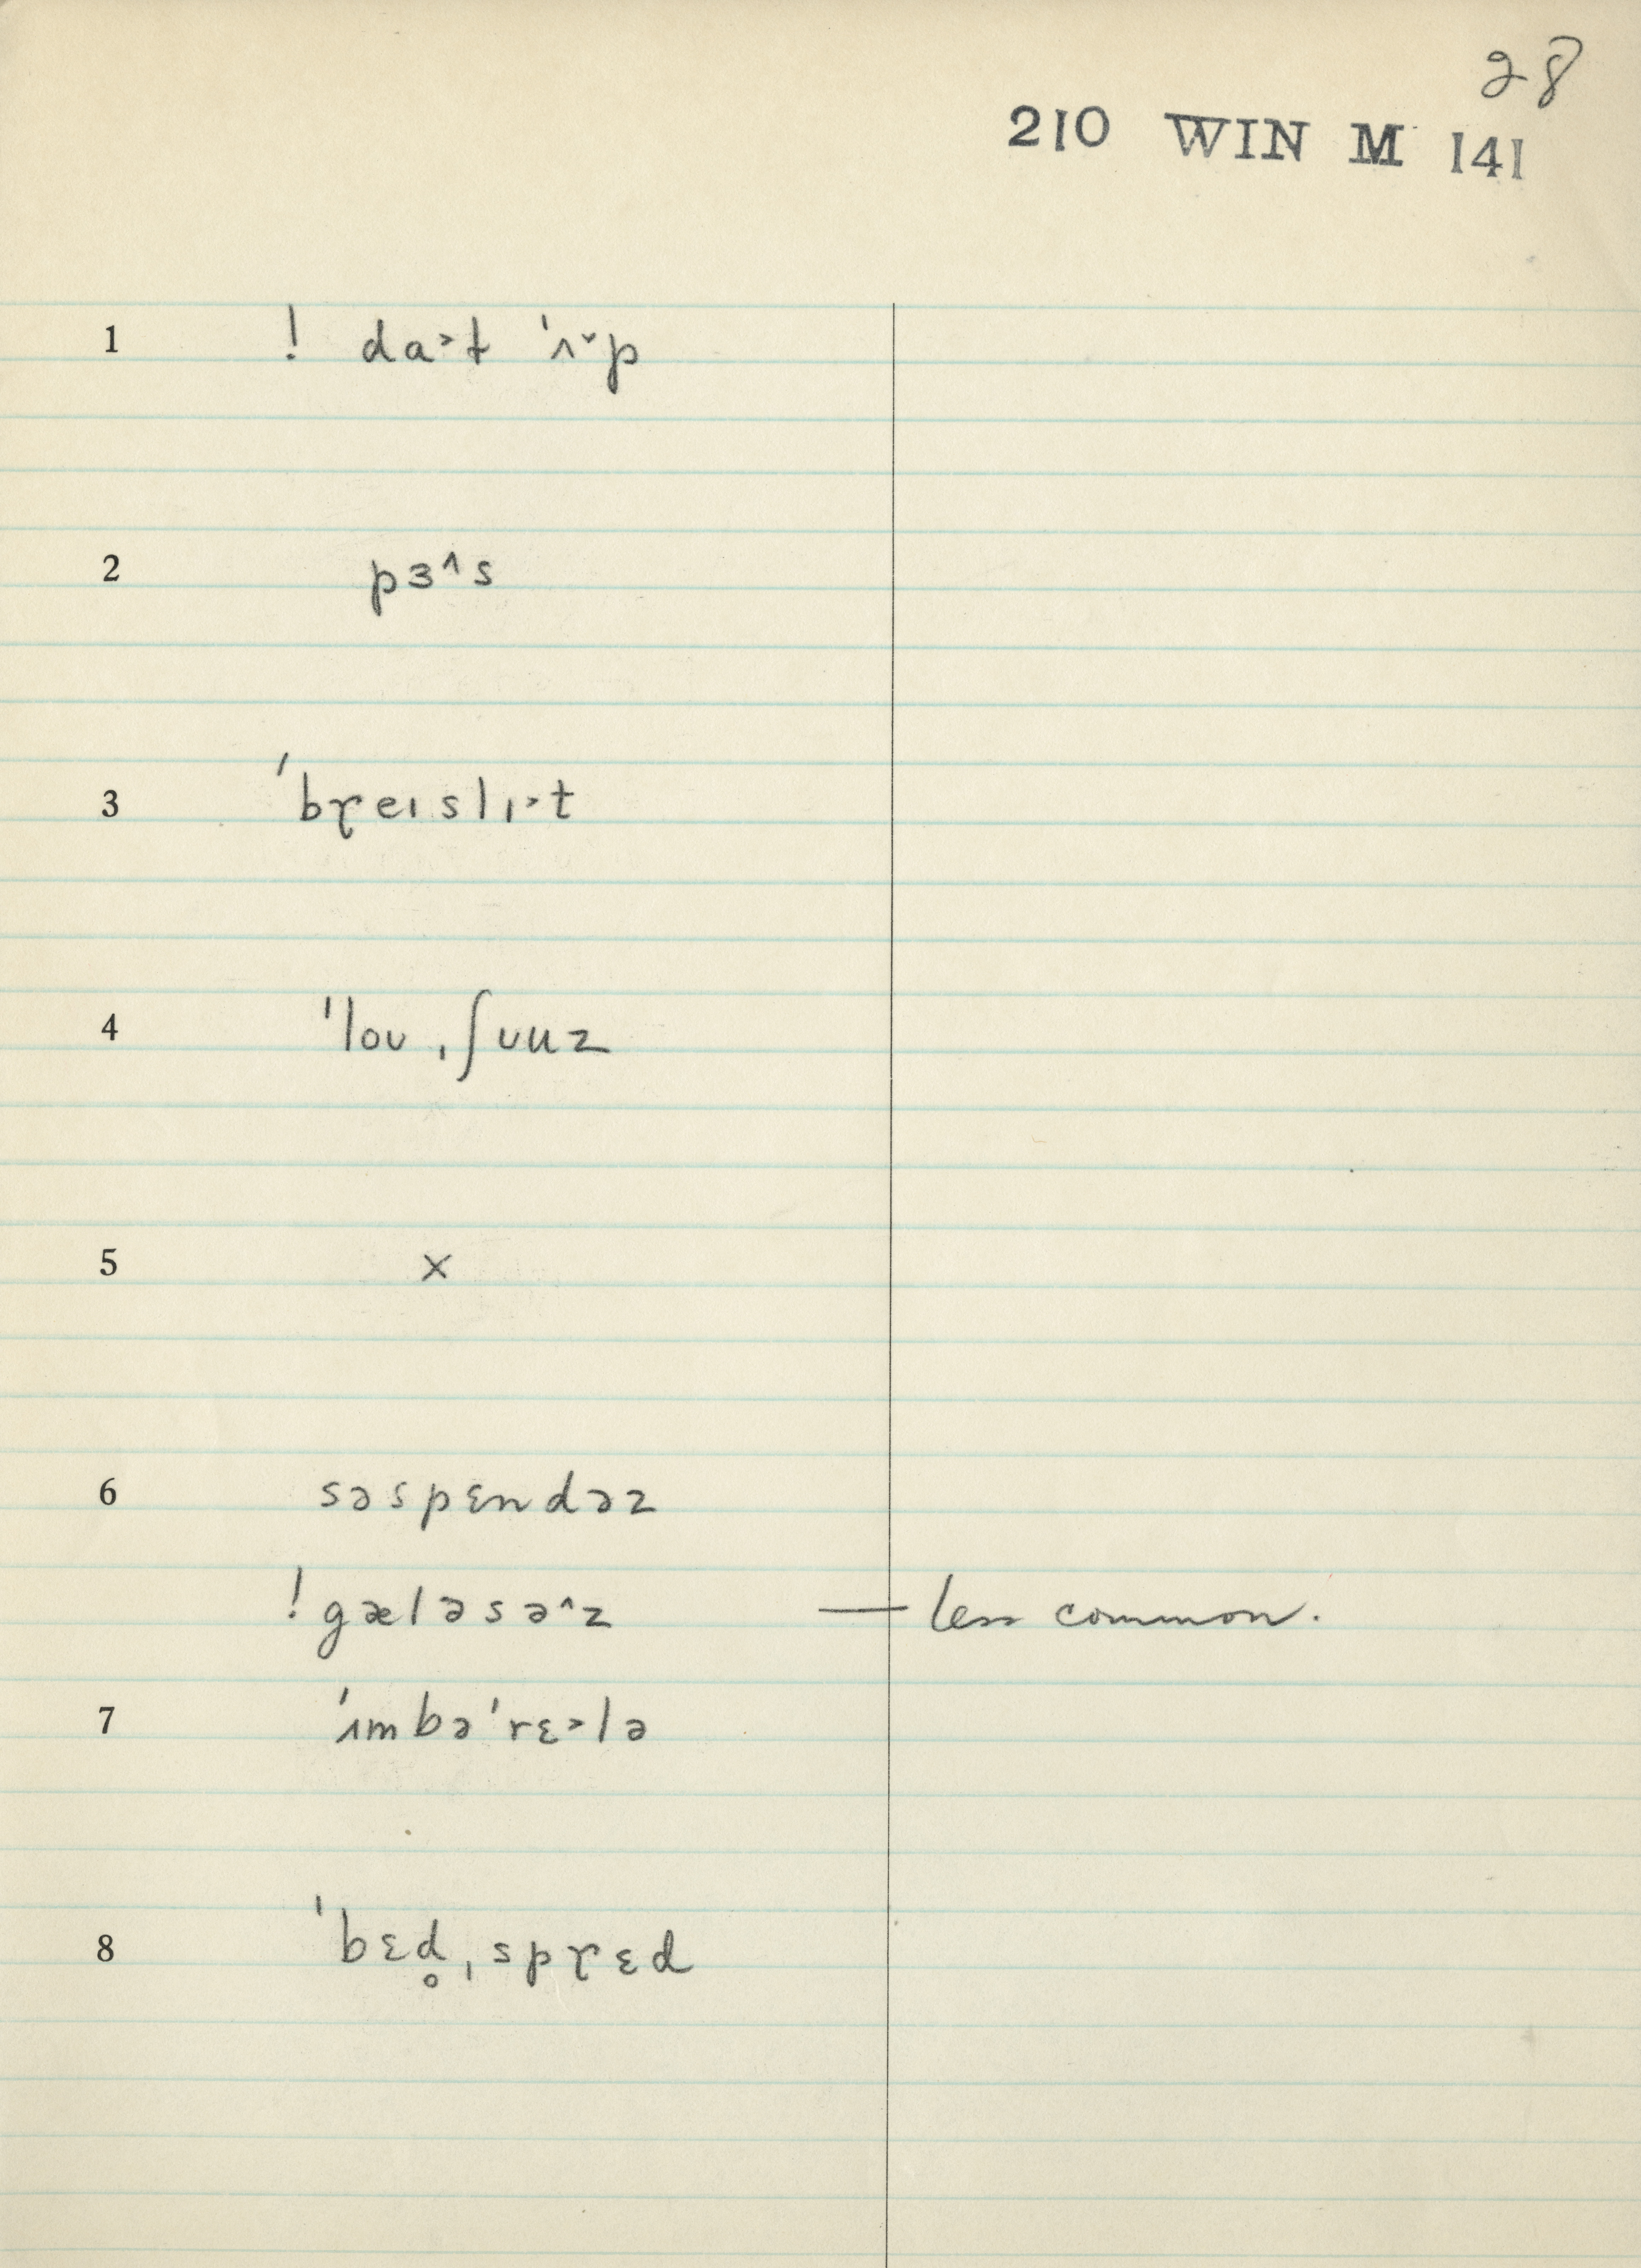 28
210 WIN M 141
1 ! da˃t 'ʌ˅p
2 pɜ^s
3 'bɼeɪslɪ˃t
4 'loʊˌʃʊuz
5 ×
6 səspɛndəz
! gæləsə^z — less common.
7 'ʌmbə'rɛ˃lə
8 'bɛd̥ˌspɼɛd